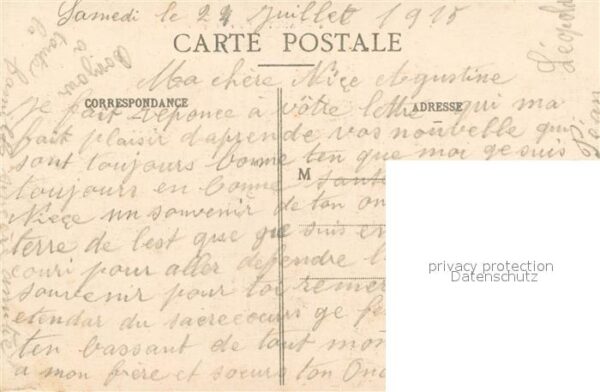 Samedi le 24 Juillet 1915
CARTE POSTALE
Ma chère Nièçe Augustine
CORRESPONDANCE
ADRESSE
je fait réponce a vôtre lettre qui ma
fait plaisir d'aprende vos nouvelle qui
sont toujours bonne ten que moi ge suis
M
toujours en bonne santé
Nièçe un souvenir de ton on
terre de lest que ge suis en
couri pour aller defendre l
souvenir pour toi remer
etendar du sacrecoeur ge fe
ten bassant de tout mon
a mon frère et soeurs ton On
Bonjour
a toute la
famille
Léopold
Péan
privacy protection
Datenschutz